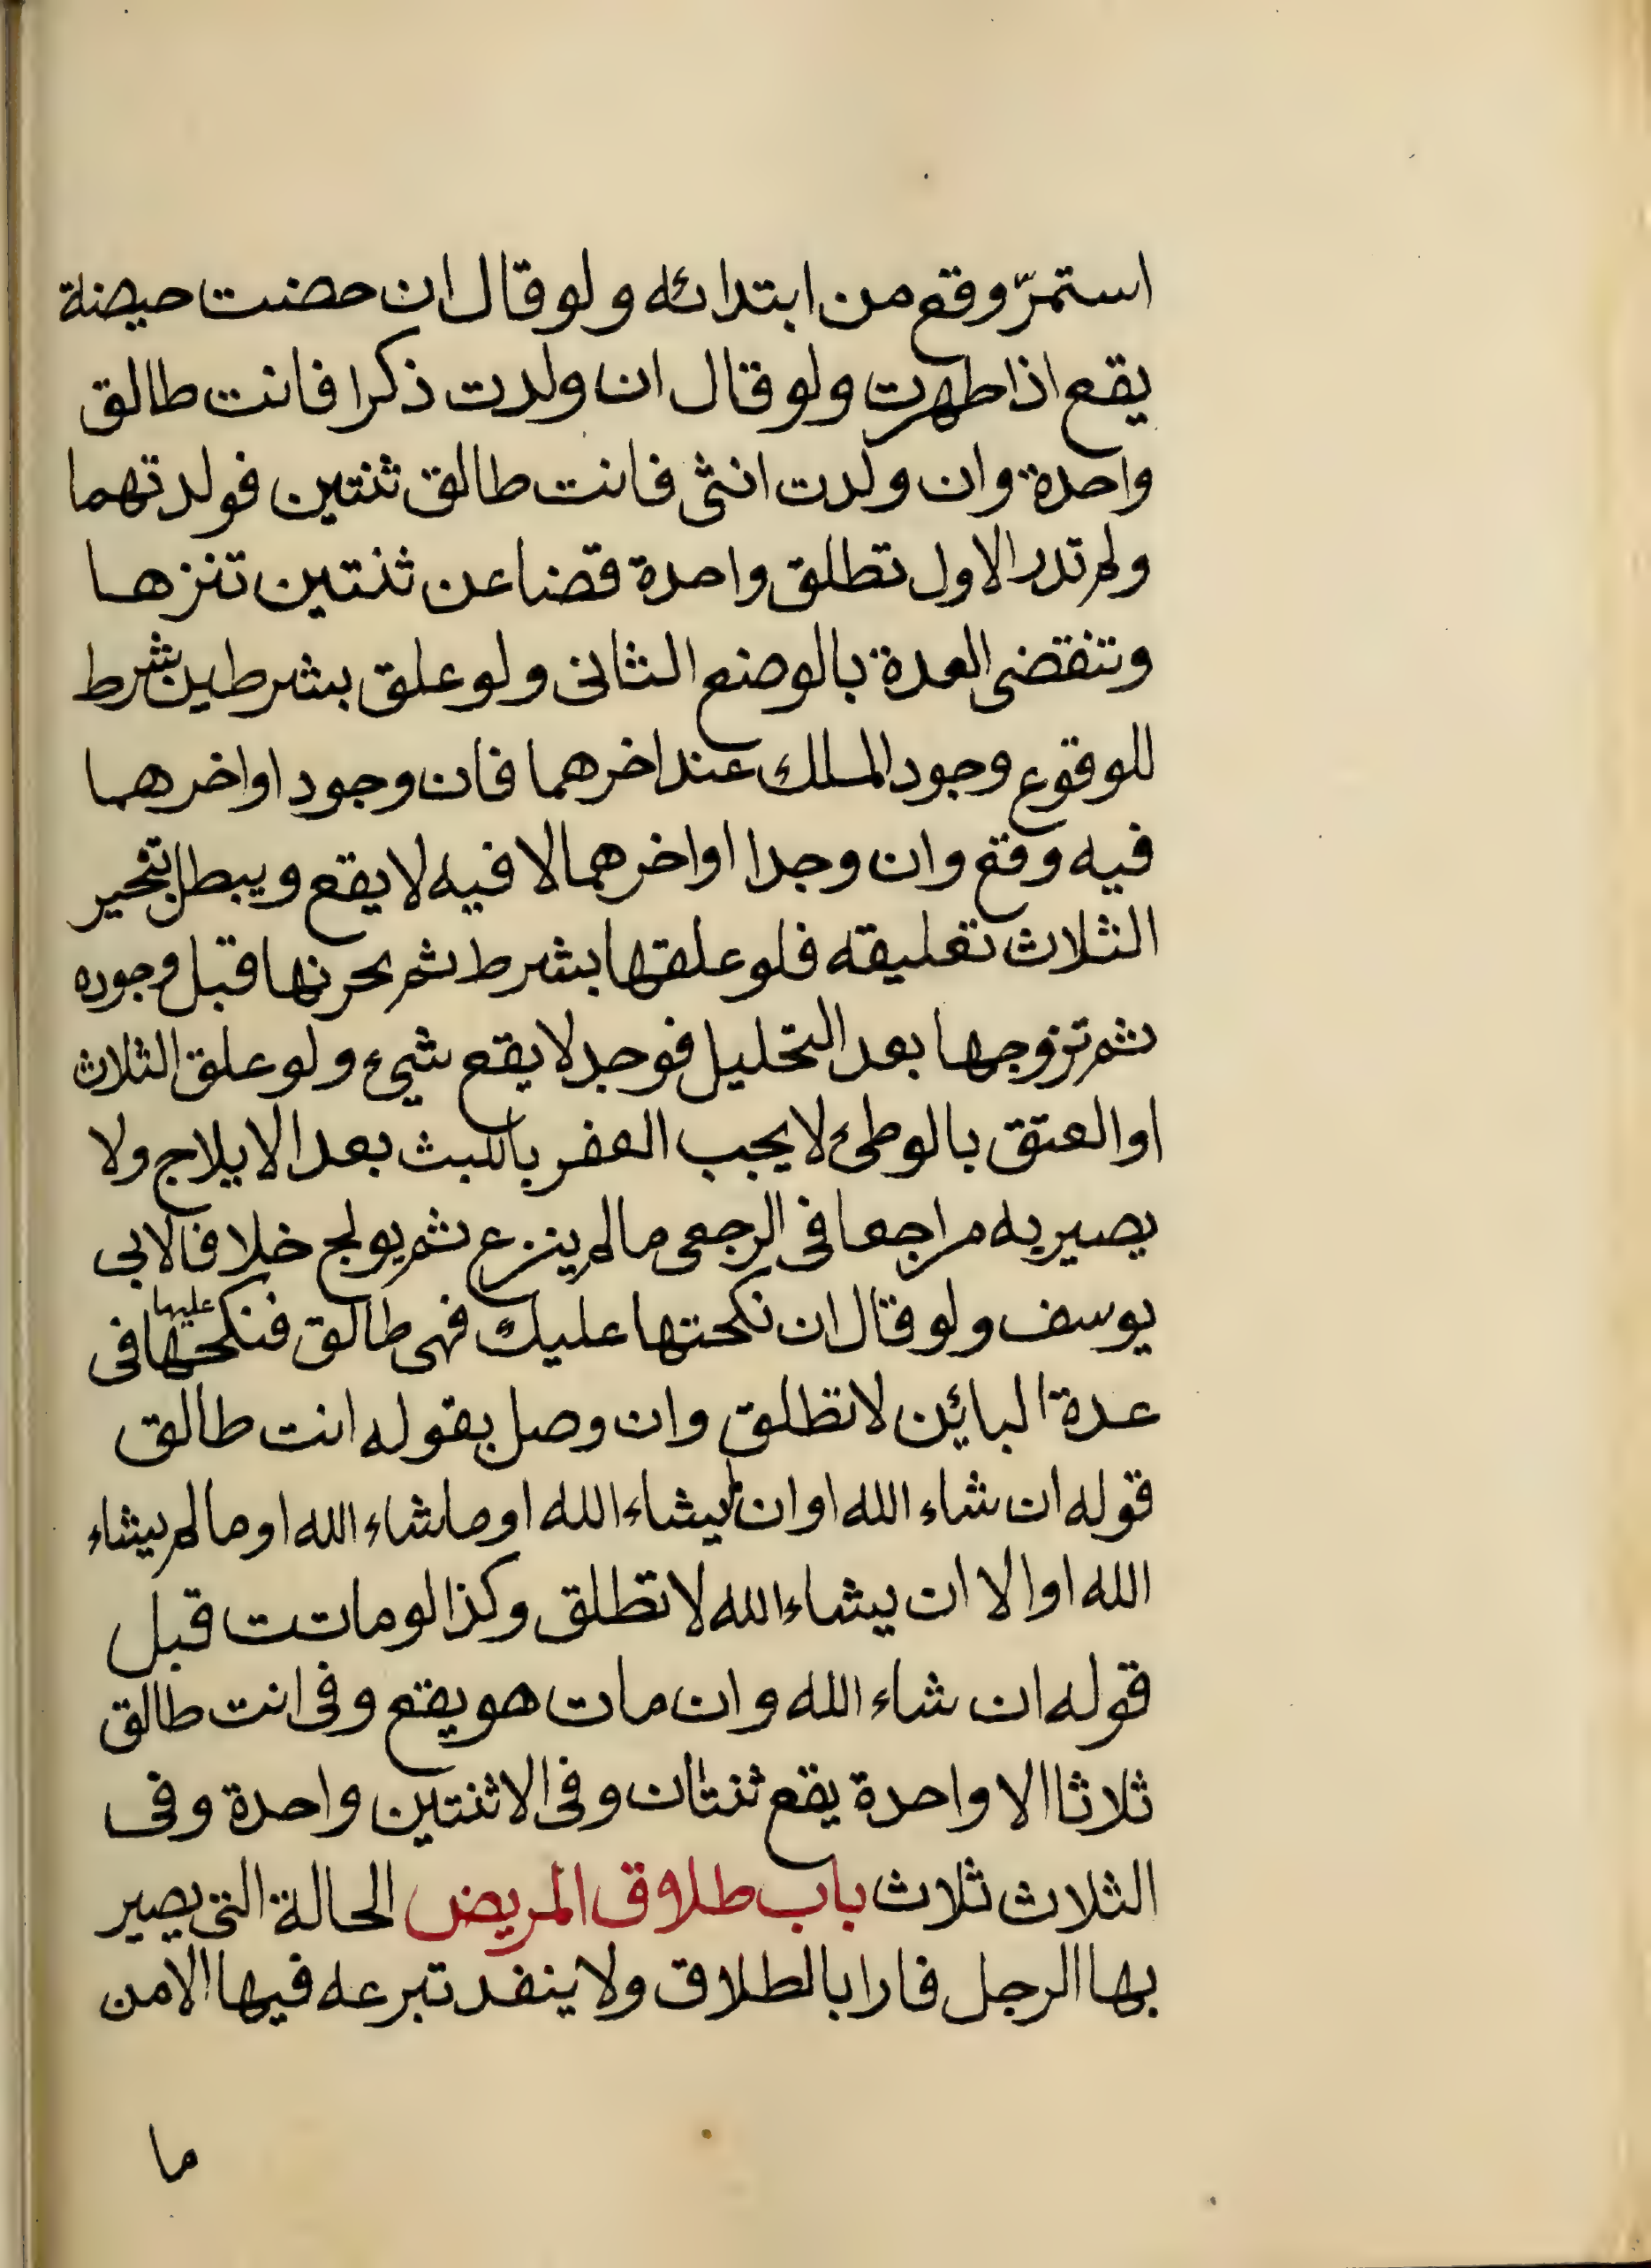 استمرّ وقع من ابتدائه ولو قال ان حضت حيضة
يقع اذا طهرت ولو قال ان ولدت ذكرا فانت طالق
واحدة وان ولدت انثى فانت طالق ثنتين فولدتهما
ولم تدر الاول تطلق واحدة قضا عن ثنتين تنزها
وتنقضى العدة بالوضع الثانى ولو علق بشرطين شرط
للوقوع وجود الملك عند اخرهما فان وجود اواخرهما
فيه وقع وان وجدا اواخرهما لا فيه لا يقع ويبطل تنجيز
الثلاث تعليقه فلو علقها بشرط ثم نحرنها قبل وجوده
ثم تزوجها بعد التحليل فوجد لا يقع شيء ولو علق الثلاث
او العتق بالوطئ لا يجب العقر باللبث بعد الايلاج ولا
يصير به مراجعا فى الرجعى ما لم ينزع ثم يولج خلافا لابى
يوسف ولو قال ان نكحتها عليك فهى طالق فنكحها عليها فى
عدة البائن لا تطلق وان وصل بقوله انت طالق
قوله ان شاء الله او ان لم يشاء الله او ما شاء الله او ما لم يشاء
الله او الا ان يشاء الله لا تطلق وكذا لو ماتت قبل
قوله ان شاء الله وان مات هو يقع وفى انت طالق
ثلاثا الا واحدة يقع ثنتان وفى الا ثنتين واحدة وفى
الثلاث ثلاث باب طلاق المريض الحالة التى يصير
بها الرجل فارا بالطلاق ولا ينفد تبرعه فيها الا من
ما